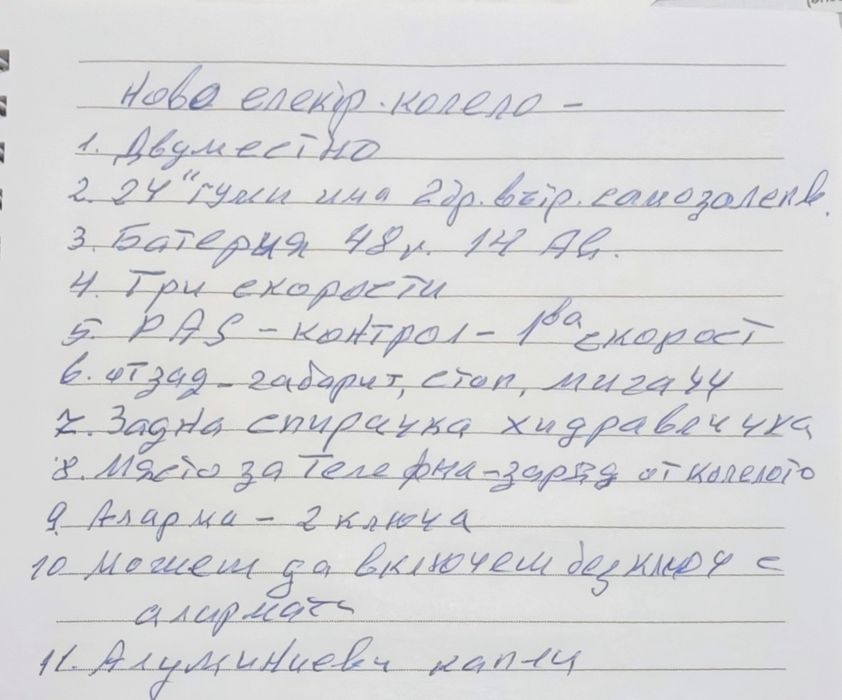 Нова електр. колело -
1. Двуместно
2. 24" гуми има 2бр. вътр. самозалепв.
3. Батерия 48v. 14 Ah.
4. Три скорости
5. PAS - контрол - 1ва скорост
6. отзад - габарит, стоп, мигачи
7. Задна спирачка хидравлична
8. Място за телефна - заряд от колелото
9. Аларма - 2 ключа
10 можеш да включеш без ключ с
алармата
11. Алуминиеви капли